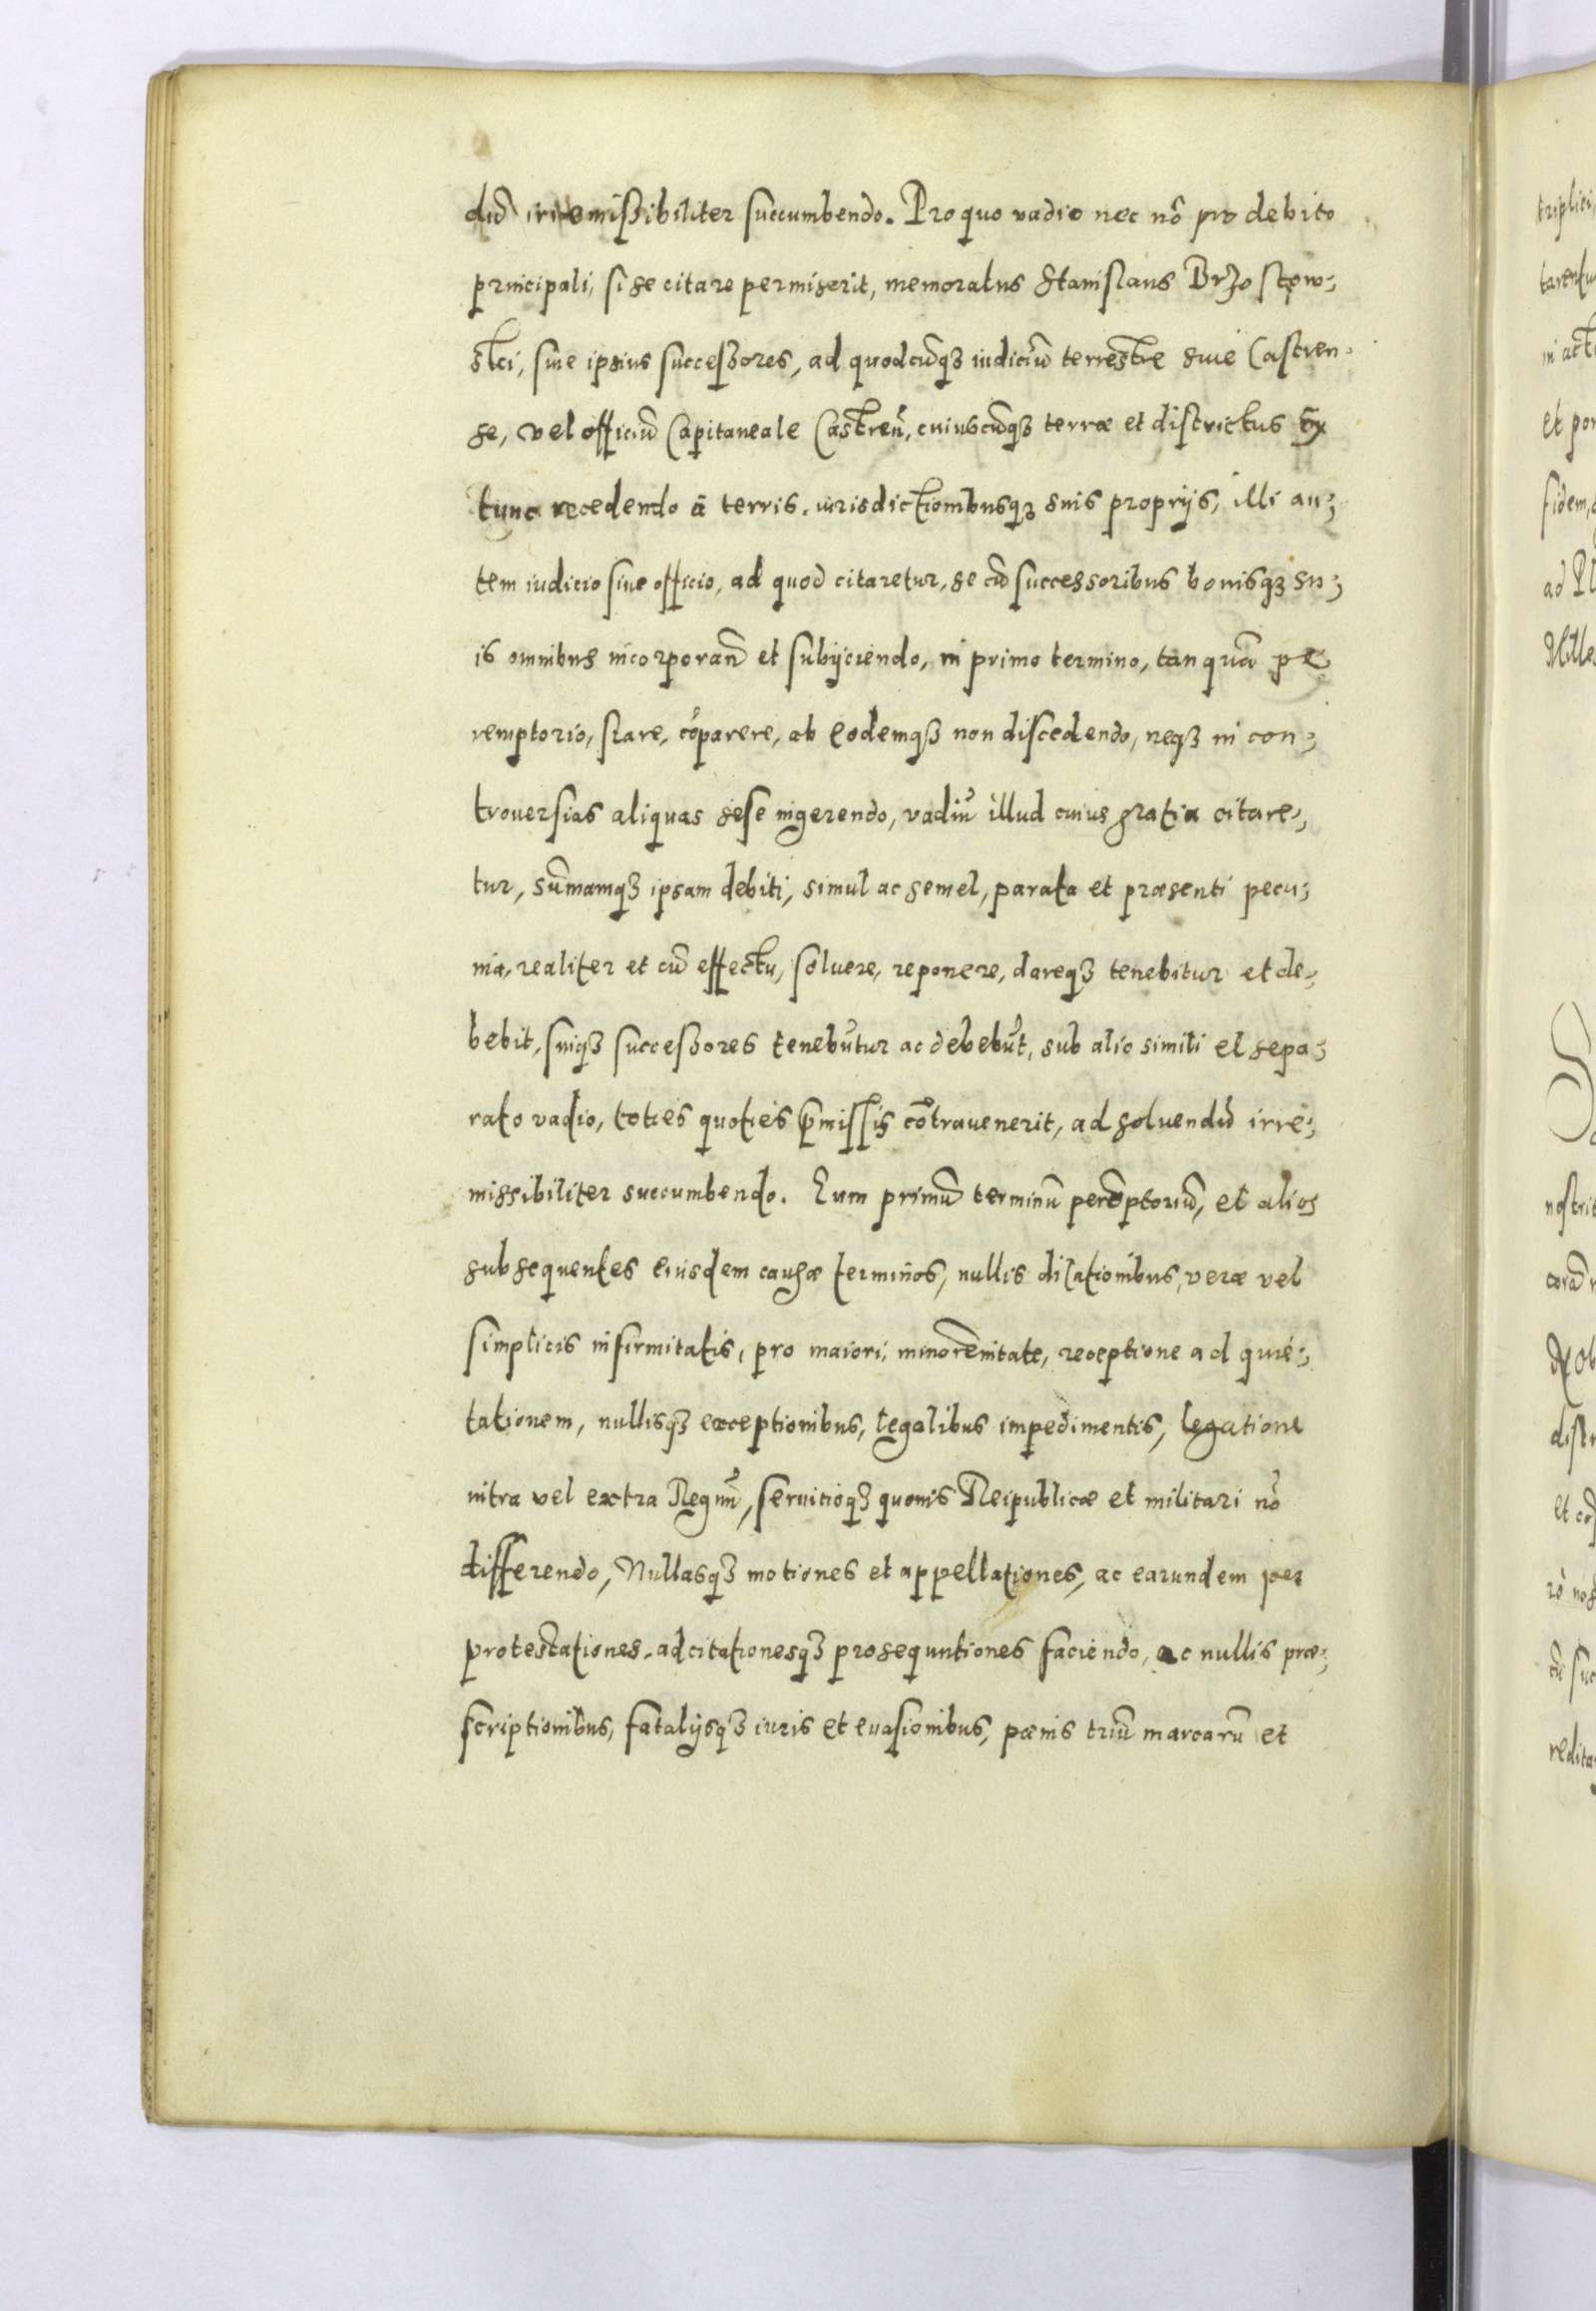 dũ irremißibiliter succumbendo. Pro quo vadio nec nõ pro debito
principali, si se citare permiserit, memoratus Stanislaus Brzostow-
stci, siue ipsius successores, ad quodcũqꝫ iudiciũ terrestre siue Castren-
se, vel officiũ Capitaneale Castreñ, cuiuscũqꝫ terræ et districtus Ex
tunc recedendo à terris, iurisdictionibusqꝫ suis proprijs, illi au-
tem iudicio siue officio, ad quod citaretur, se cũ successoribus bonisqꝫ su-
is omnibus incorporañ et subijciendo, in primo termino, tanquã pe
remptorio, stare, cõparere, ab eodemqꝫ non discedendo, neqꝫ in con-
trouersias aliquas sese ingerendo, vadiũ illud cuius gratia citare-
tur, sũmamqꝫ ipsam debiti, simul ac semel, parata et præsenti pecu-
nia, realiter et cũ effectu, soluere, reponere, dareqꝫ tenebitur et de-
bebit, suiqꝫ successores tenebũtur ac debebũt, sub alio simili et sepa-
rato vadio, toties quoties p̃missis cõtrauenerit, ad soluendũ irre-
missibiliter succumbendo. Eum primũ terminũ perẽptoriũ, et alios
subsequentes eiusdem causæ terminos, nullis dilationibus, veræ vel
simplicis infirmitatis, pro maiori, minorẽnitate, receptione ad quie-
tationem, nullisqꝫ exceptionibus, legalibus impedimentis, legatione
intra vel extra Regnũ, seruitioqꝫ quouis Reipublicæ et militari nõ
differendo, Nullasqꝫ motiones et appellationes, ac earundem per
protestationes, ad citationesqꝫ prosequutiones faciendo, ac nullis præ-
scriptionibus, fatalijsqꝫ iuris et euasionibus, pænis triũ marcarũ et